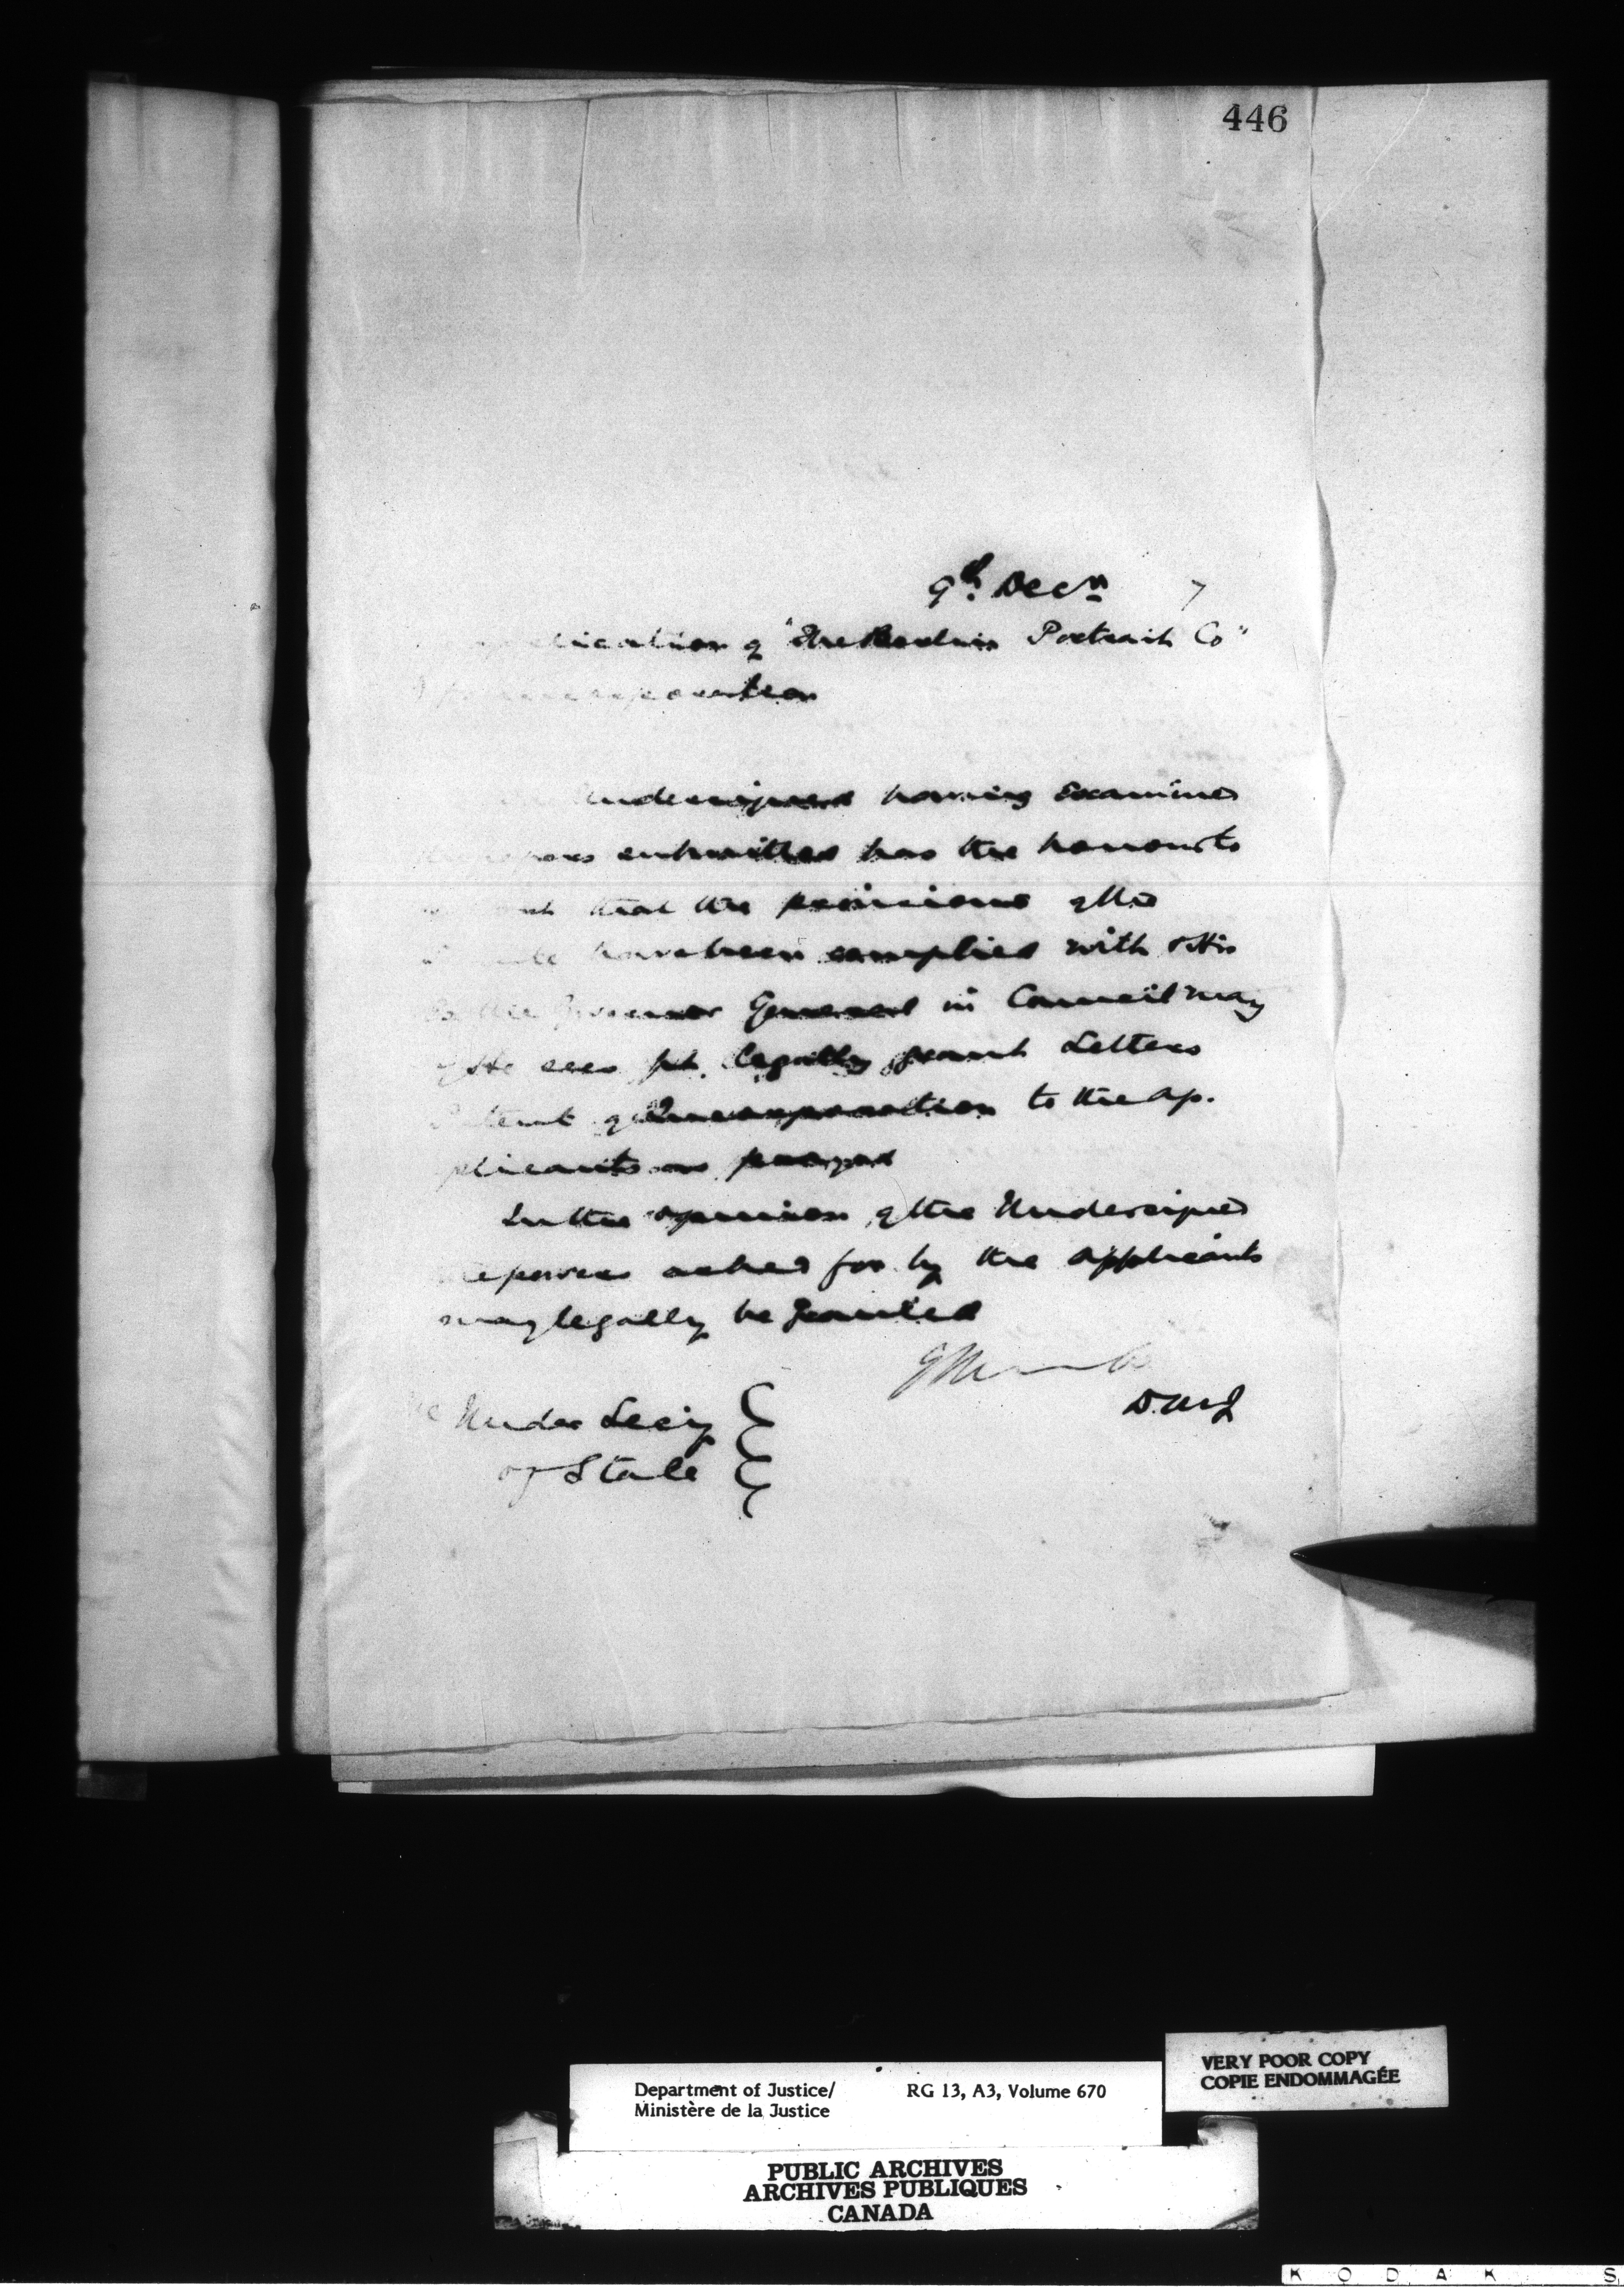 446
9th Decr 7
of "The Portrait Co"
undersigned having examined
submitted has the honour to
that the provisions of the
have been complied with & His
the Governor General in Council may
if He sees fit legally grant Letters
Patent of Incorporation to the ap-
plicants as prayed
In the opinion of the Undersigned
powers asked for by the applicants
may legally be granted
D.M.J
Under Secy
of State
VERY POOR COPY
COPIE ENDOMMAGÉE
Department of Justice/ RG 13, A3, Volume 670
Ministère de la Justice
PUBLIC ARCHIVES
ARCHIVES PUBLIQUES
CANADA
K O D A K S